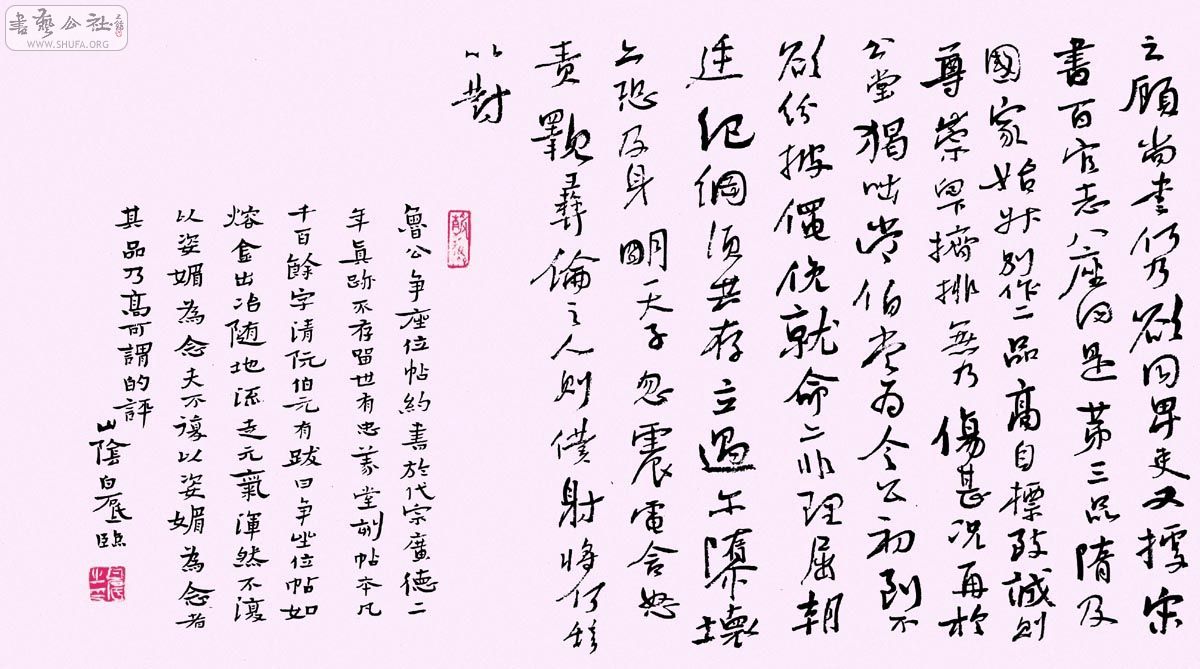 之顧尚書仍乃欲同卑吏又據宋
書百官志八座同是第三品隋及
國家始升別作二品高自標致誠則
尊崇卑擠排無乃傷甚況再於
公堂猲咄常伯當為令公初到不
欲紛披僶俛就命亦非理屈朝
廷紀綱須共存立過尔隳壞
亦恐及身明天子忽震電含怒
責斁彝倫之人則僕射將何辭
以對
魯公爭座位帖約書於代宗廣德二
年真跡不存留世有忠義堂刻帖本凡
千百餘字清阮伯元有跋曰爭坐位帖如
熔金出冶随地流走元氣渾然不復
以姿媚為念夫不復以姿媚為念者
其品乃高可謂的評
山陰白砥臨
書藝公社
WWW.SHUFA.ORG